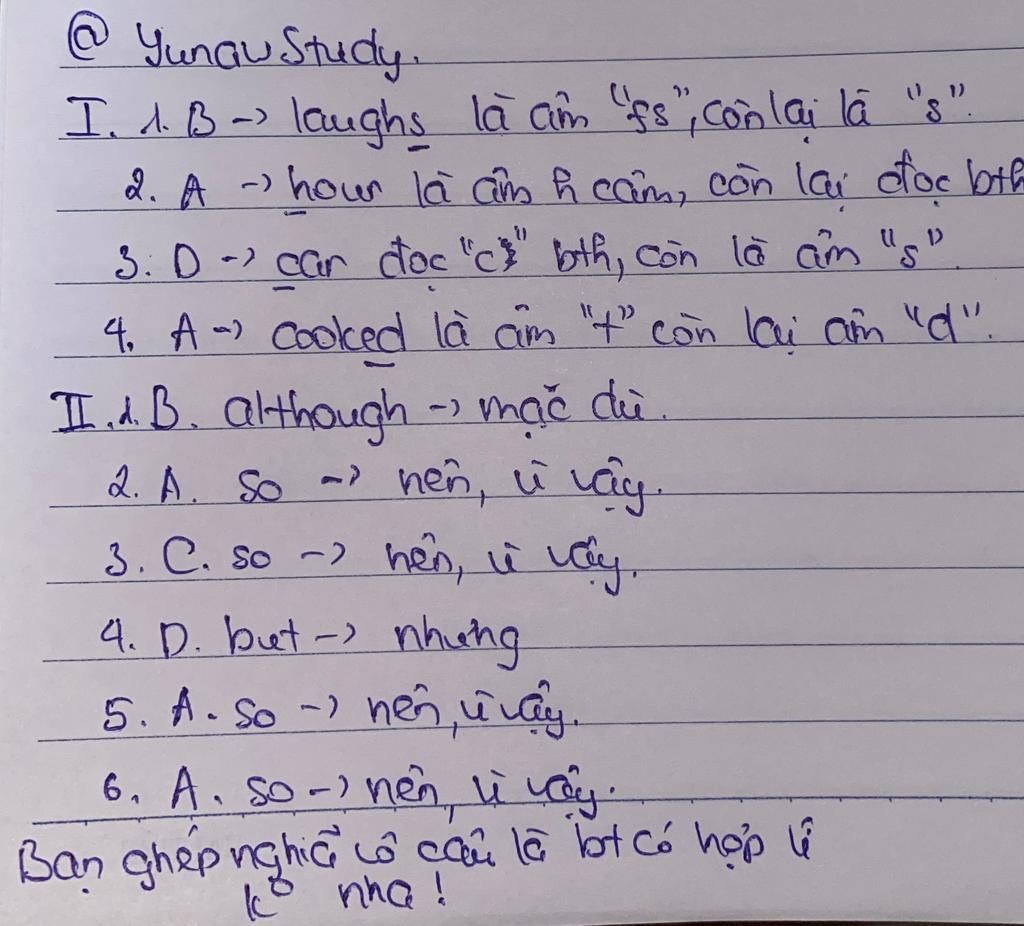 @ YunauStudy.
I. 1. B -> laughs là âm "fs", còn lại là "s".
2. A -> hour là âm h câm, còn lại đọc bth
3. D -> can đọc "c" bth, còn là âm "s".
4. A -> cooked là âm "t" còn lại âm "d".
II. 1. B. although -> mặc dù.
2. A. so -> nên, vì vậy.
3. C. so -> nên, vì vậy.
4. D. but -> nhưng
5. A. so -> nên, vì vậy.
6. A. so -> nên, vì vậy.
Bạn ghép nghĩa vô câu là bt có hợp lí
k° nha!